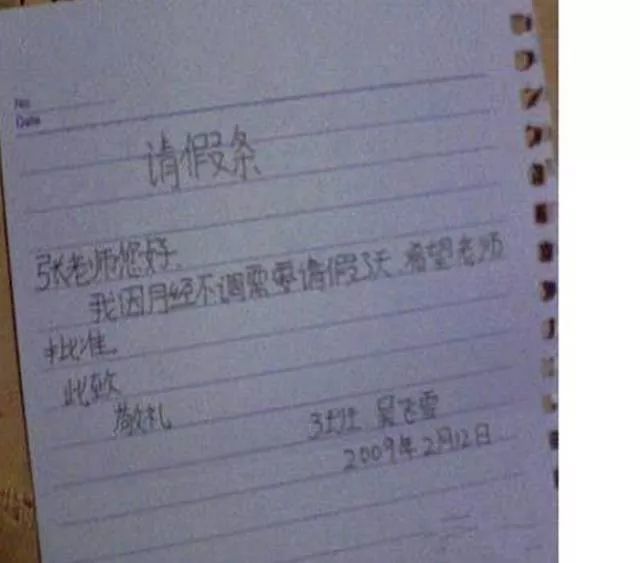 No.
Date
请假条
张老师您好.
我因月经不调需要请假3天.希望老师
批准。
此致
敬礼
3班 吴飞雪
2009年2月12日